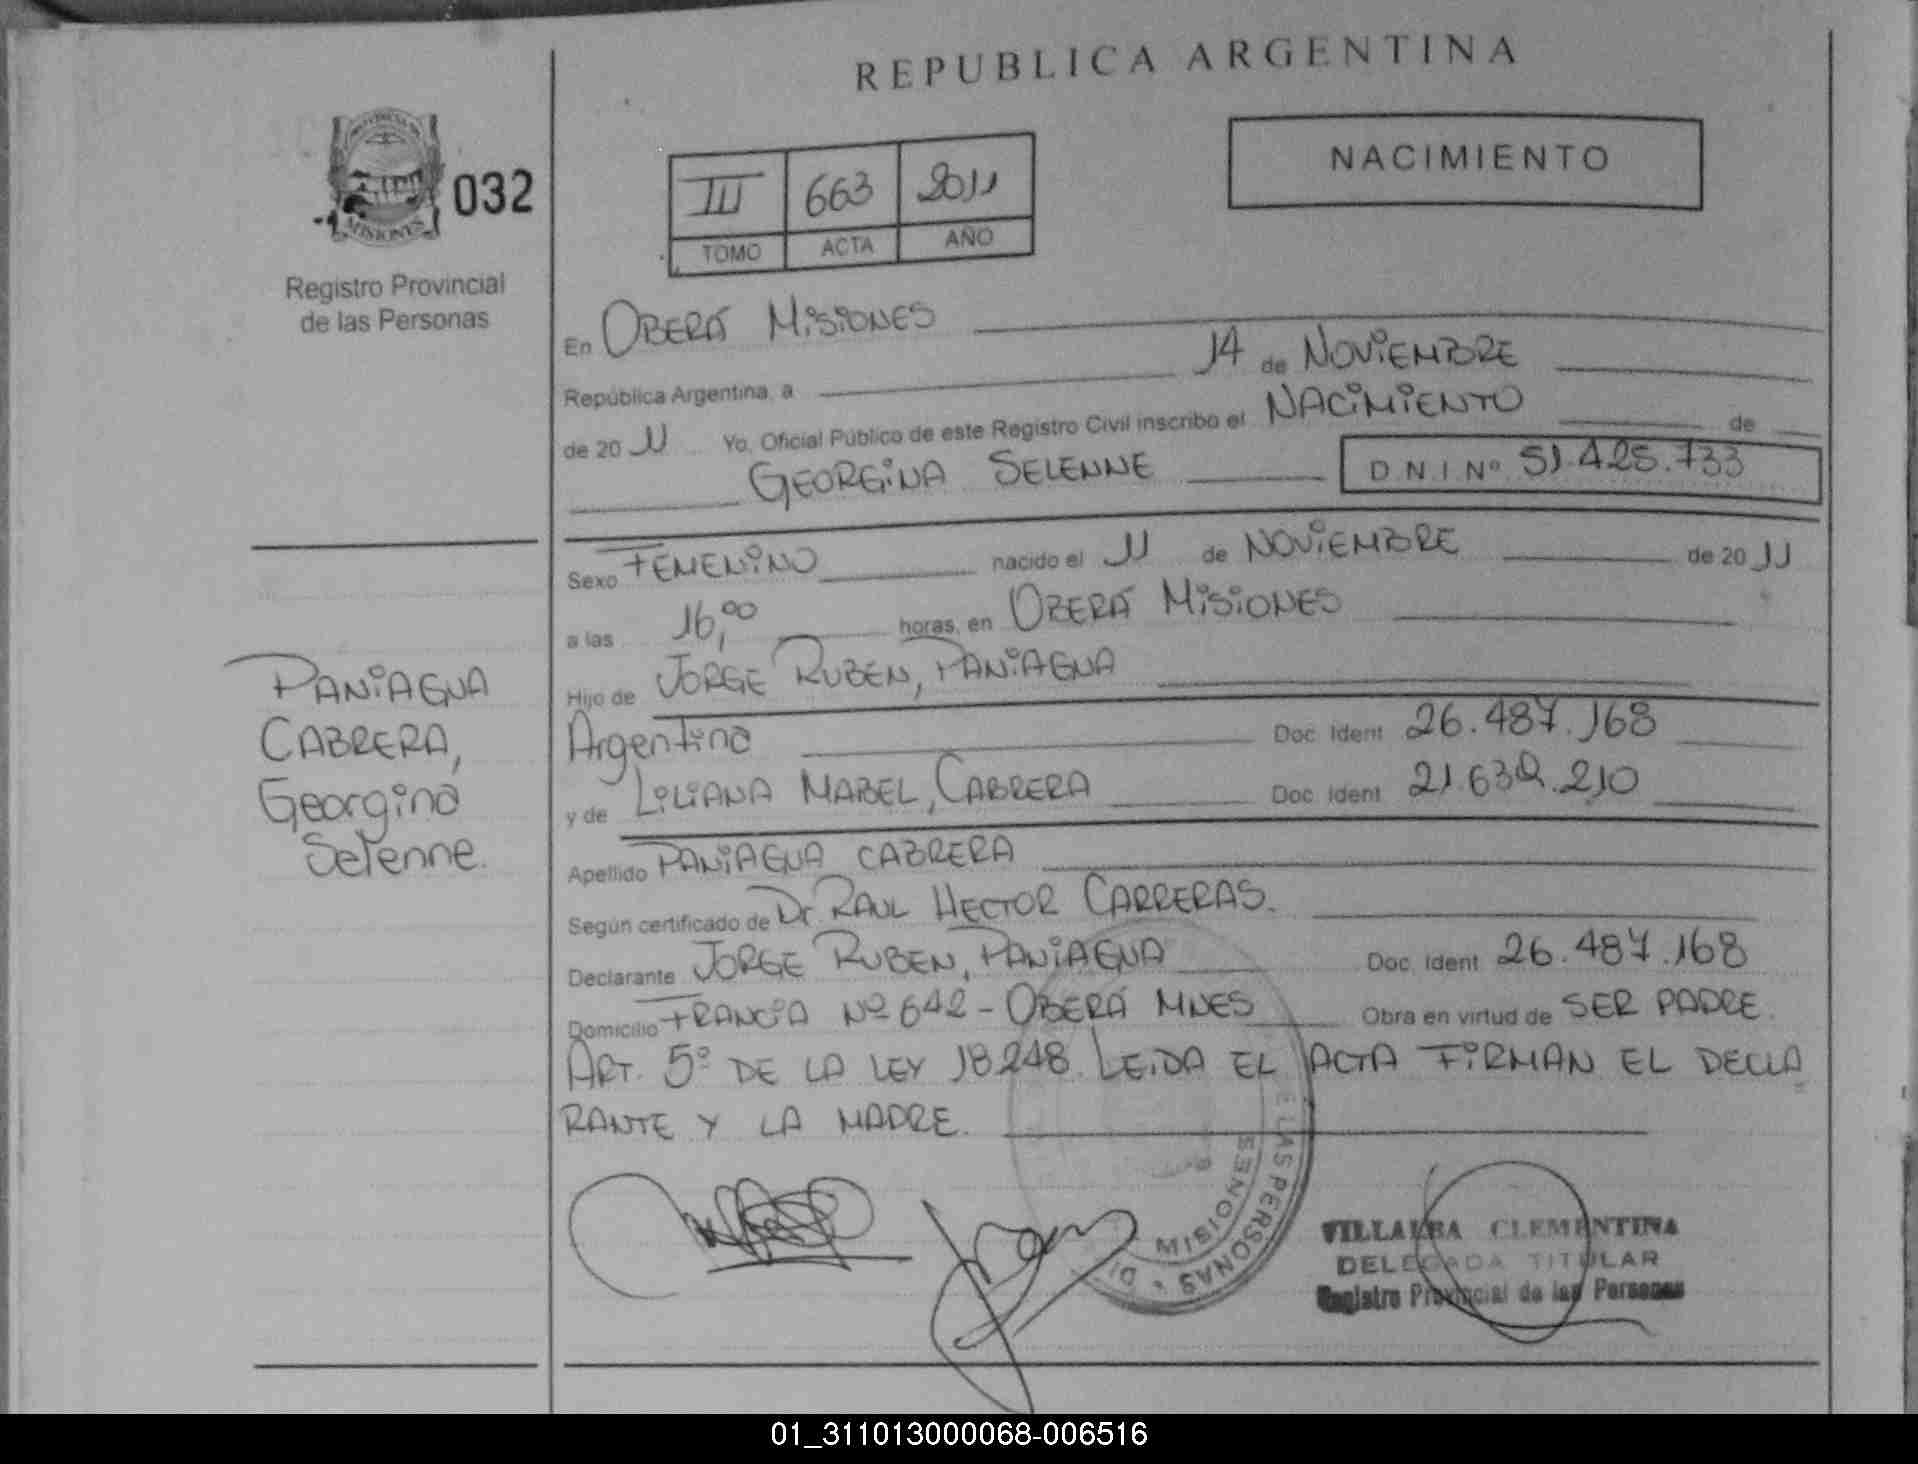 REPUBLICA ARGENTINA
NACIMIENTO
PROVINCIA DE
MISIONES
032
Registro Provincial
de las Personas
III 663 2011
TOMO ACTA AÑO
En OBERÁ MISIONES
República Argentina, a 14 de NOVIEMBRE
de 2011 Yo, Oficial Público de este Registro Civil inscribo el NACIMIENTO de
GEORGINA SELENNE D.N.I Nº 51.425.733
Sexo FEMENINO nacido el 11 de NOVIEMBRE de 2011
a las 16,00 horas, en OBERÁ MISIONES
Hijo de JORGE RUBEN, PANIAGUA
Argentina Doc. Ident 26.487.168
y de LILIANA MABEL, CABRERA Doc. Ident 21.632.210
Apellido PANIAGUA CABRERA
Según certificado de Dr RAUL HECTOR CARRERAS.
Declarante JORGE RUBEN, PANIAGUA Doc. Ident 26.487.168
Domicilio FRANCIA Nº 642 - OBERÁ MNES Obra en virtud de SER PADRE.
ART. 5º DE LA LEY 18248. LEIDA EL ACTA FIRMAN EL DECLA
RANTE Y LA MADRE.
PANIAGUA
CABRERA,
Georgina
Selenne.
E LAS PERSONAS
MISIONES
VILLALBA CLEMENTINA
DELEGADA TITULAR
Registro Provincial de las Personas
01_311013000068-006516